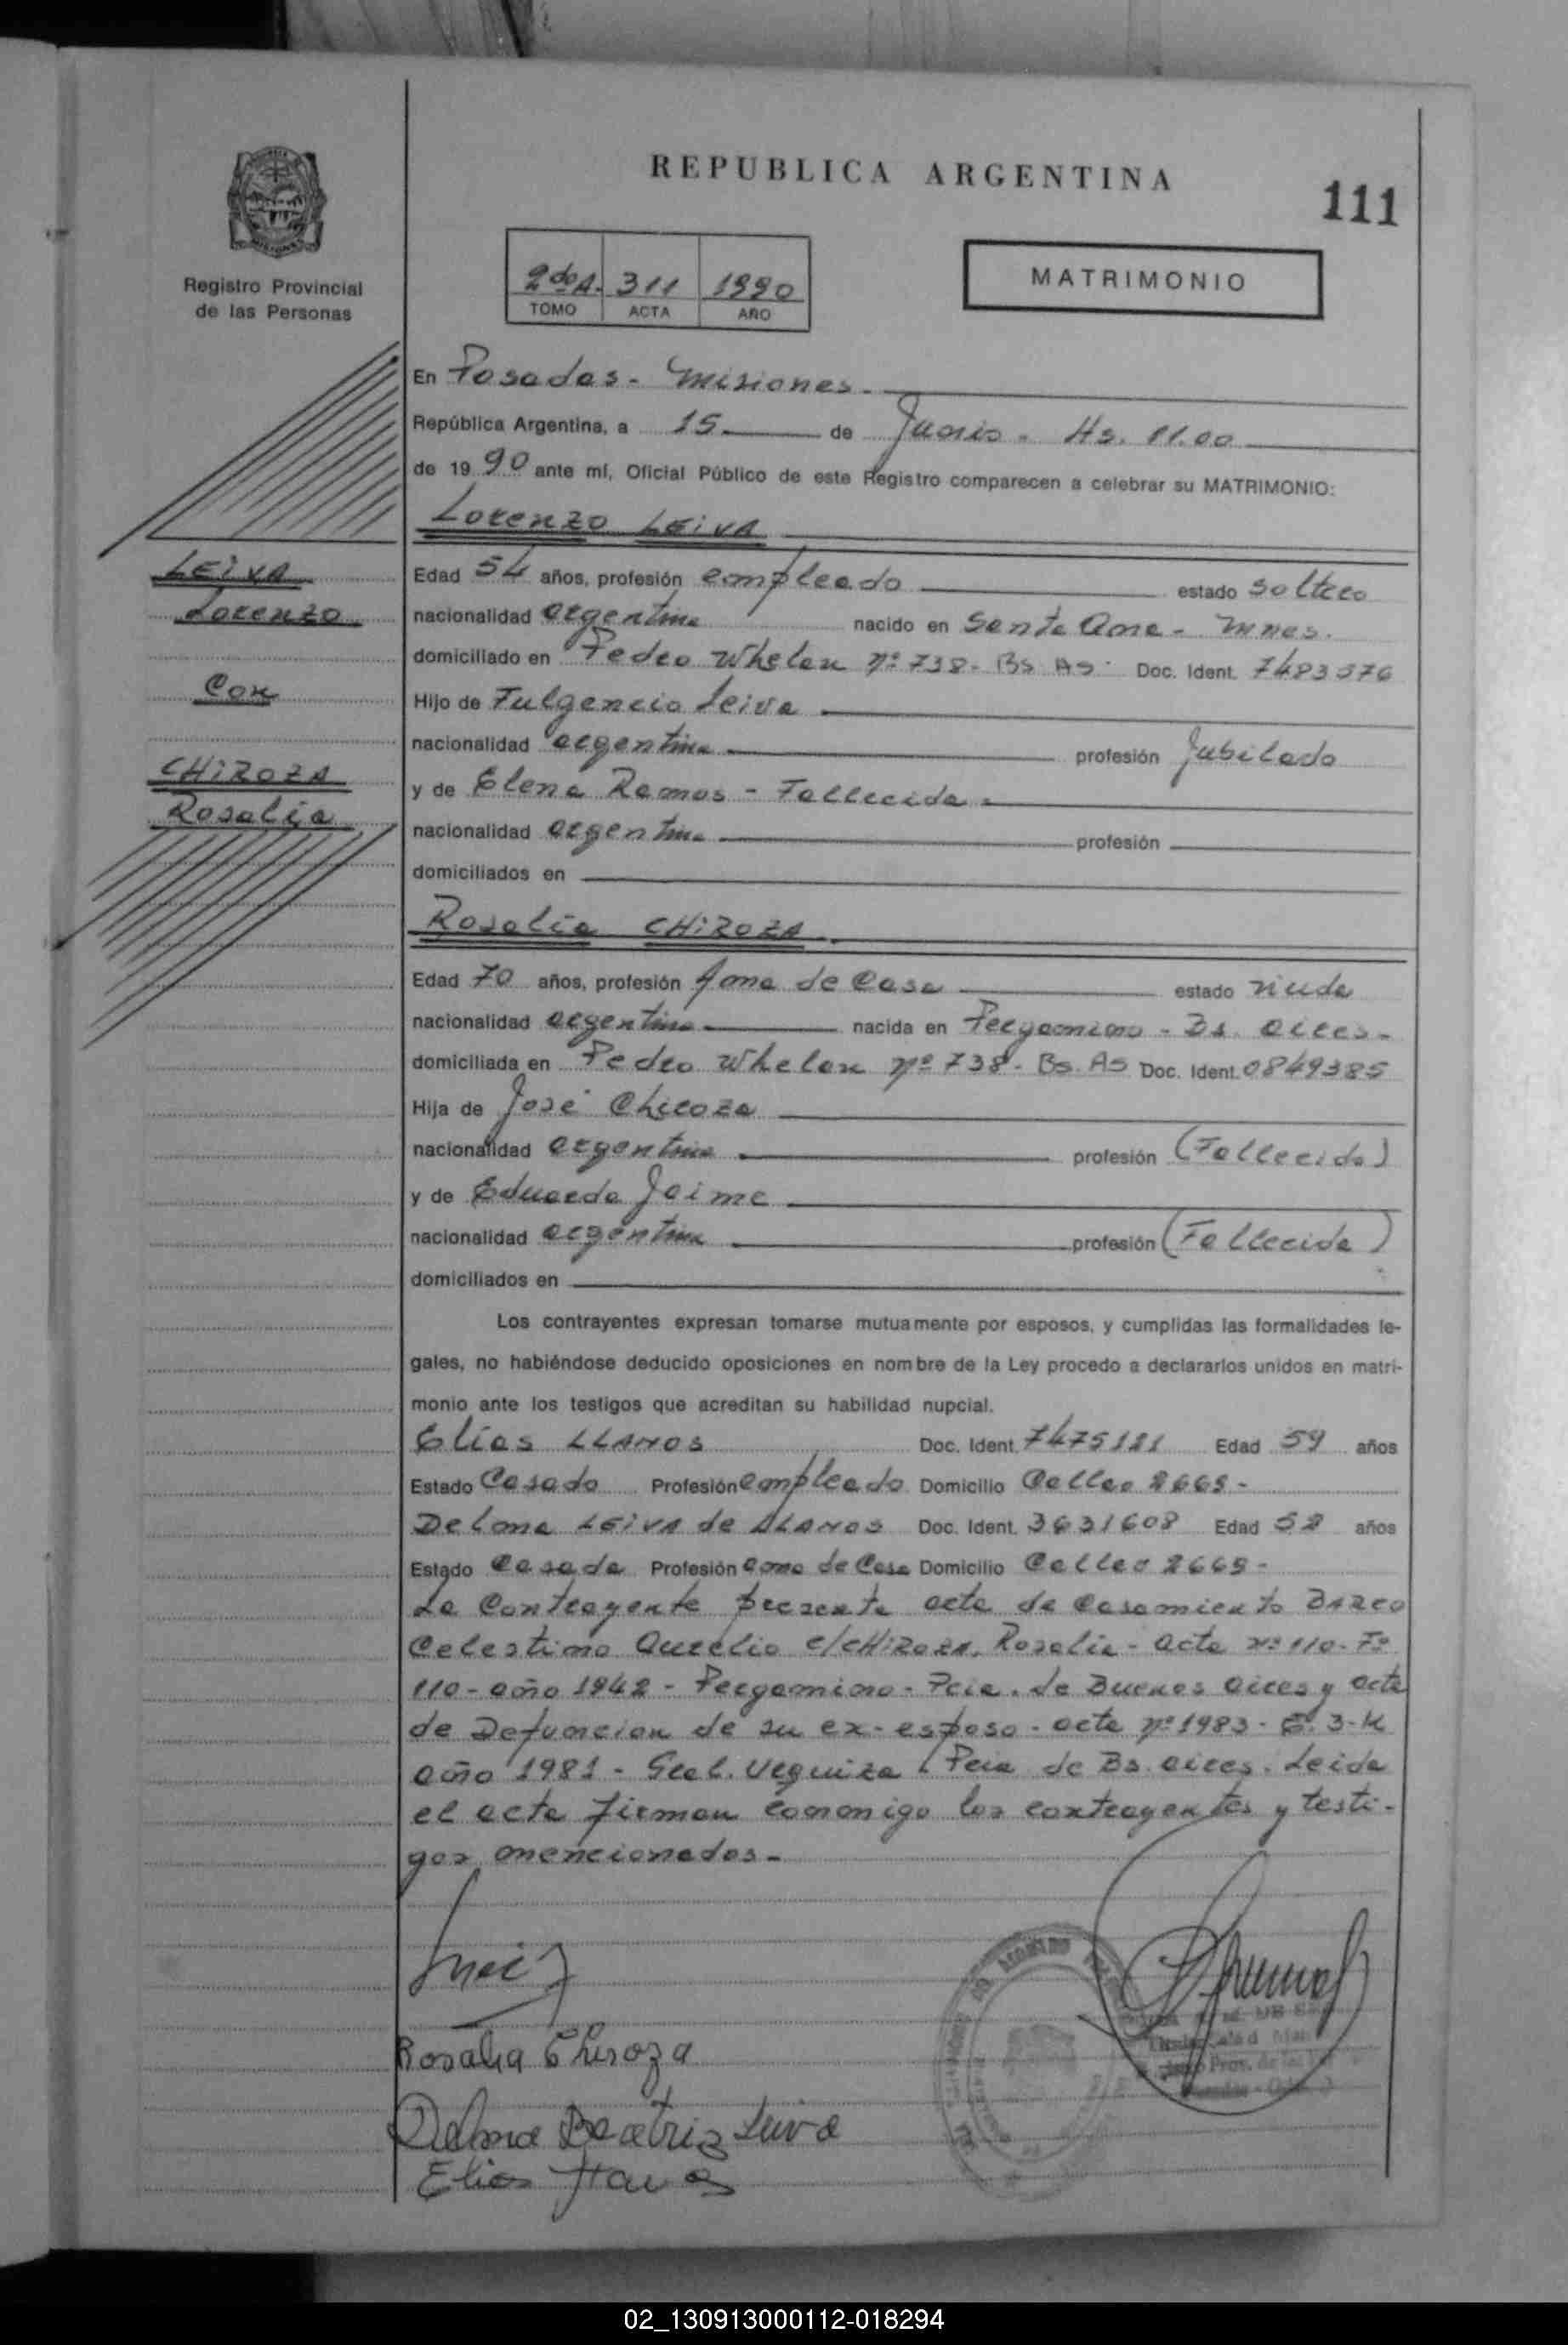 REPUBLICA ARGENTINA
111
Registro Provincial
de las Personas
2do A. 311 1990
TOMO ACTA AÑO
MATRIMONIO
En Posadas - Misiones.
República Argentina, a 15 de Junio - Hs. 11.00
de 1990 ante mí, Oficial Público de este Registro comparecen a celebrar su MATRIMONIO:
Lorenzo LEiVA
LEiVA
Lorenzo
Con
CHiROZA
Rosalia
Edad 54 años, profesión empleado estado soltero
nacionalidad argentina nacido en Santa Ana - Mnes.
domiciliado en Pedro Whelan nº 738 - Bs As. Doc. Ident. 7483376
Hijo de Fulgencio Leiva
nacionalidad argentina profesión Jubilado
y de Elena Ramos - Fallecida.
nacionalidad argentina profesión
domiciliados en
Rosalia CHiROZA.
Edad 70 años, profesión Ama de Casa estado viuda
nacionalidad argentina nacida en Pergamino - Bs. Aires -
domiciliada en Pedro Whelan nº 738 - Bs. As Doc. Ident. 0849385
Hija de José Chiroza
nacionalidad argentina profesión (Fallecido)
y de Eduarda Jaime
nacionalidad argentina profesión (Fallecida)
domiciliados en
Los contrayentes expresan tomarse mutuamente por esposos, y cumplidas las formalidades le-
gales, no habiéndose deducido oposiciones en nombre de la Ley procedo a declararlos unidos en matri-
monio ante los testigos que acreditan su habilidad nupcial.
Elías LLANOS Doc. Ident. 7475181 Edad 59 años
Estado Casado Profesión empleado Domicilio Callao 2669 -
Delma LEiVA de LLANOS Doc. Ident. 3631608 Edad 52 años
Estado Casada Profesión ama de Casa Domicilio Callao 2669 -
La Contrayente presenta acta de Casamiento
Celestino Aurelio c/CHiROZA, Rosalia - acta nº 110 - Fº
110 - año 1942 - Pergamino - Pcia. de Buenos Aires y acta
de Defuncion de su ex-esposo - acta nº 1983 - 3-K
año 1981 - Gral. Urquiza Pcia de Bs. Aires. Leida
el acta firman conmigo los contrayentes y testi-
gos mencionados -
Rosalia Chiroza
Delma Beatriz Leiva
Elias Llanos
02_130913000112-018294